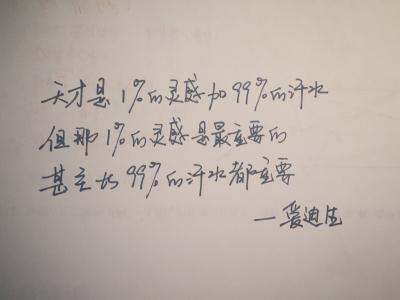 天才是1%的灵感加99%的汗水
但那1%的灵感是最重要的
甚至比99%的汗水都重要
—爱迪生